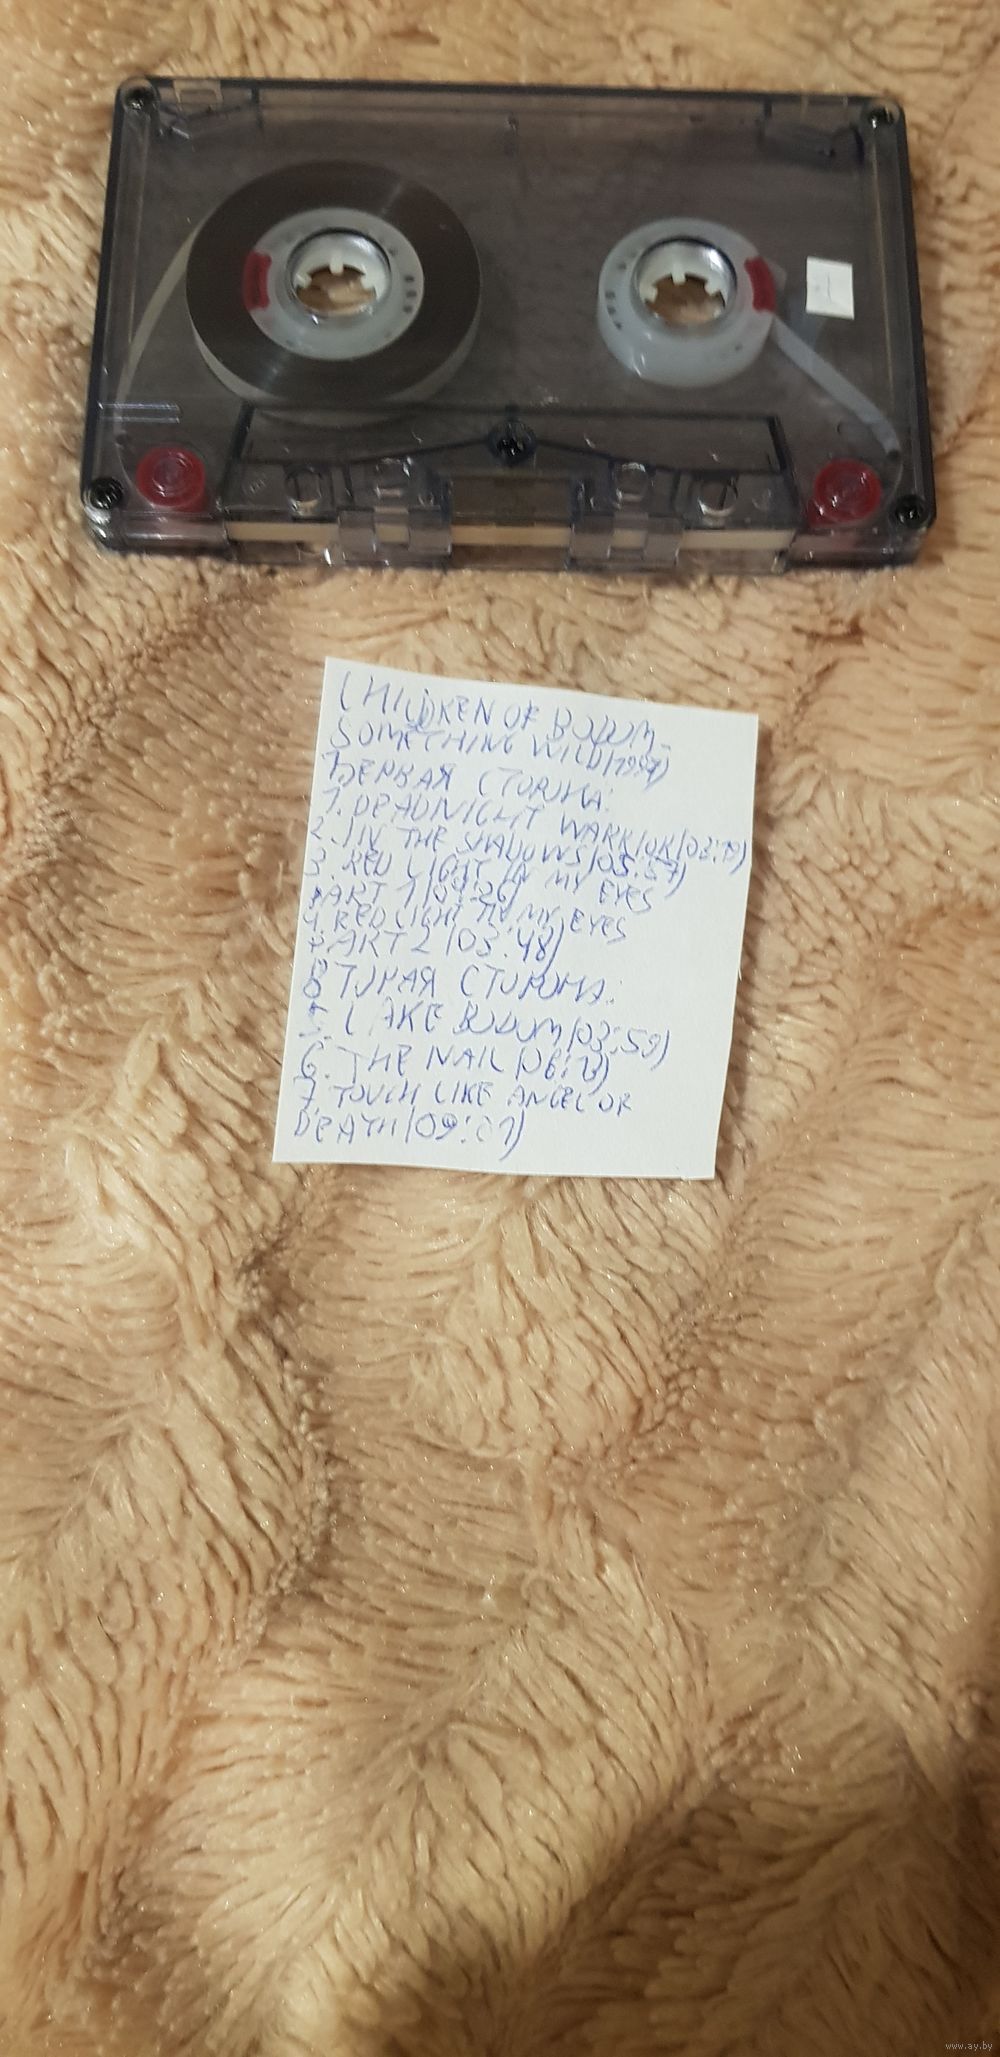 CHILDREN OF BODOM-
SOMETHING WILD(1997)
ПЕРВАЯ СТОРОНА:
1. DEADNIGHT WARRIOR(03:19)
2. IN THE SHADOWS(05:57)
3. RED LIGHT IN MY EYES
PART 1(04:26)
4. RED LIGHT IN MY EYES
PART 2 (03:48)
ВТОРАЯ СТОРОНА:
5. LAKE BODOM(03:59)
6. THE NAIL(06:13)
7. TOUCH LIKE ANGEL OF
DEATH(09:01)
www.ay.by